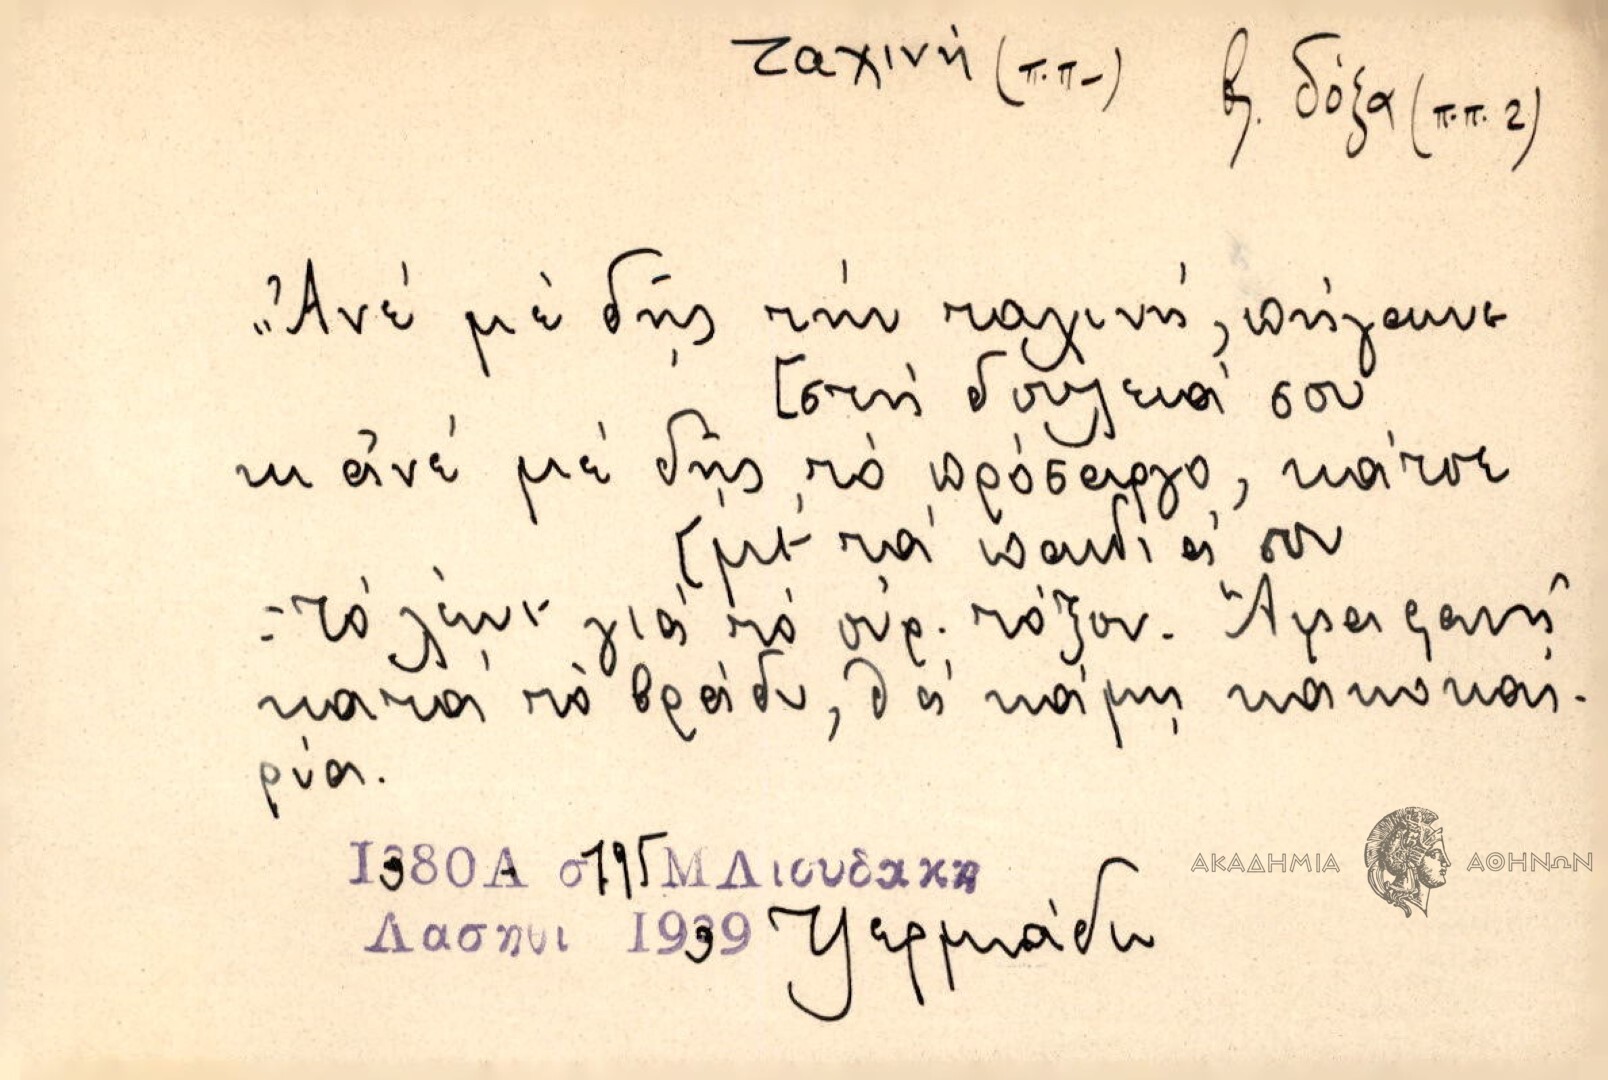 ταχινή (π.π-)
βλ. δόξα (π.π. 2)
„Ἀνέ μὲ δῇς τὴν ταχινή, πήγαινε
[στή δουλειά σου
κι ἀνέ μέ δῇς τὸ πρόσαργο, κάτσε
[μέ τά παιδιά σου
=τό λένε γιά τό οὐρ. τόξον. Ἅμα φανῇ
κατά τό βράδυ, θά κάμῃ κακοκαι-
ρία.
1380Α σ195 Μ Λιουδακη
Λασηθι 1939 Τζερμιάδω
ΑΚΑΔΗΜΙΑ ΑΘΗΝΩΝ